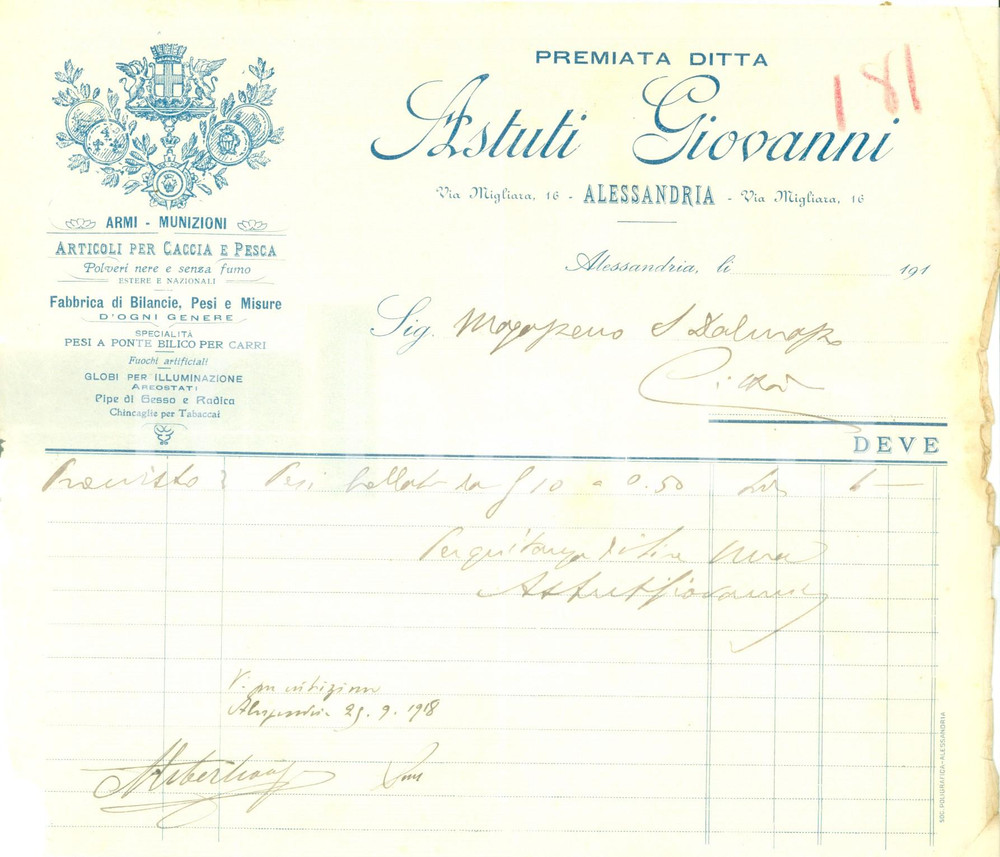 PREMIATA DITTA
181
Astuti Giovanni
Via Migliara, 16 - ALESSANDRIA - Via Migliara, 16
ARMI - MUNIZIONI
ARTICOLI PER CACCIA E PESCA
Polveri nere e senza fumo
ESTERE E NAZIONALI
Fabbrica di Bilancie, Pesi e Misure
D'OGNI GENERE
SPECIALITÀ
PESI A PONTE BILICO PER CARRI
Fuochi artificiali
GLOBI PER ILLUMINAZIONE
AREOSTATI
Pipe di Gesso e Radica
Chincaglie per Tabaccai
Alessandria, li 191
Sig.
Città
DEVE
Pesi da g 10 a 0.50
Per quitanza di Lire
Astuti Giovanni
Alessandria 25. 9. 1918
SOC. POLIGRAFICA - ALESSANDRIA